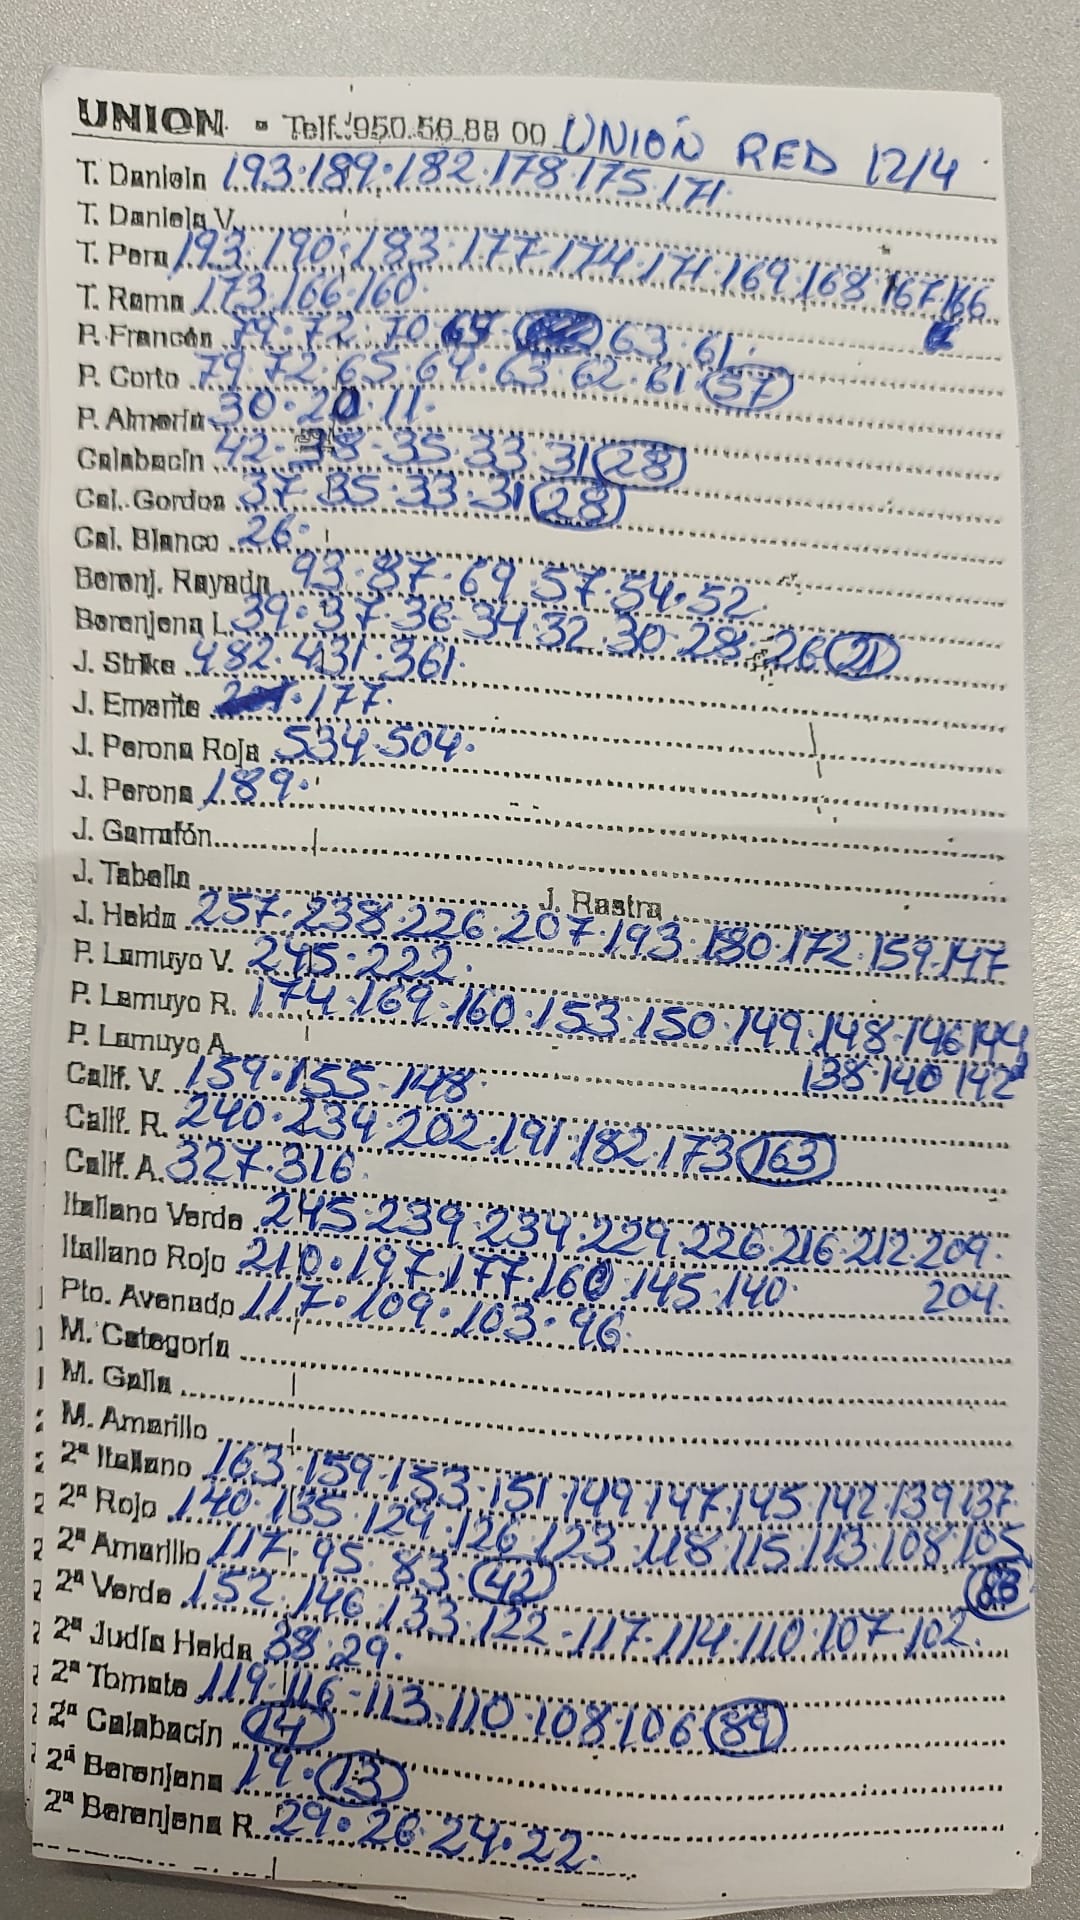 UNION - Telf. 950.56.88 00 UNIÓN RED 12/4
T. Daniela 193·189·182·178·175·171·
T. Daniela V.
T. Pera 193·190·183·177·174·171·169·168 167·166
T. Rama 173·166·160·
P. Francés 79·72·70 63·61·
P. Corto 79·72·65·64·63·62·61 57
P. Almería 30·20·11·
Calabacín 42·38·35·33·31 28
Cal. Gordos 37·35·33·31 28
Cal. Blanco 26·
Berenj. Rayada 93·87·69·57·54·52·
Berenjena L. 39·37·36·34·32·30·28·26 21
J. Strike 482·431·361·
J. Emerite ·177·
J. Perona Roja 534·504·
J. Perona 189·
J. Garrafón
J. Tabella J. Rastra
J. Helda 257·238·226·207·193·180·172·159·147
P. Lamuyo V. 245·222·
P. Lamuyo R. 174·169·160·153·150·149·148·146 144
P. Lamuyo A. 138·140 142
Calif. V. 159·155·148·
Calif. R. 240·234·202·191·182·173 163
Calif. A. 327·316·
Italiano Verde 245·239·234·229·226·216·212·209·
Italiano Rojo 210·197·177·160·145·140· 204·
Pto. Avenado 117·109·103·96·
M. Categoría
M. Galia
M. Amarillo
2ª Italiano 163·159·153·151·149·147·145·142·139·137·
2ª Rojo 140·135·129·126·123·118·115·113·108·105
2ª Amarillo 117·95·83·42
2ª Verde 152·146·133·122·117·114·110·107·102·
2ª Judía Helda 38·29·
2ª Tomate 119·116·113·110·108·106 89
2ª Calabacín 14
2ª Berenjena 19·13
2ª Berenjena R. 29·26·24·22·